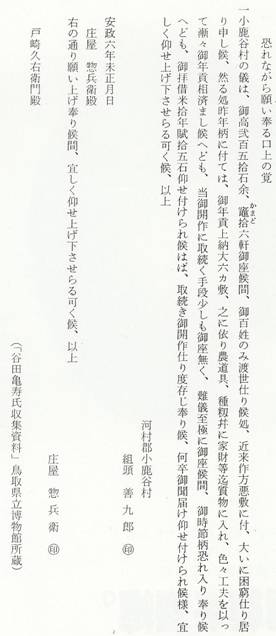 恐れながら願い奉る口上の覚
一小鹿谷村の儀は、御高弐百五拾石余、竈拾六軒御座候間、御百姓のみ渡世仕り候処、近来作方悪敷に付、大いに困窮仕り居
かまど
り申し候、然る処昨年柄に付ては、御年貢上納大六ヵ敷、之に依り農道具、種籾幷に家財等迄質物に入れ、色々工夫を以っ
て漸々御年貢相済まし候へども、当御開作に取続く手段少しも御座無く、難儀至極に御座候間、御時節柄恐れ入り奉り候
へども、御拝借米拾年賦拾五石仰せ付けられ候はば、取続き御開作仕り度存じ奉り候、何卒御聞届け仰せ付けられ候様、宜
しく仰せ上げ下させらる可く候、以上
河村郡小鹿谷村
組頭 善九郎 ㊞
安政六年未正月日
庄屋 惣兵衛殿
右の通り願い上げ奉り候間、宜しく仰せ上げ下させらる可く候、以上
庄屋 惣兵衛 ㊞
戸崎久右衛門殿
(「谷田亀寿氏収集資料」鳥取県立博物館所蔵)